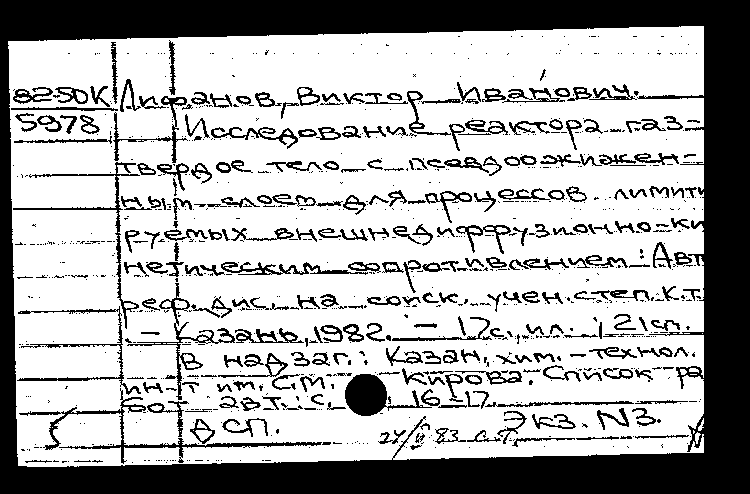 82-50К Лифанов, Виктор Иванович.
5978 Исследование реактора газ-
твердое тело с псевдоожижен-
ным слоем для процессов лимити
руемых внешнедиффузионно-ки
нетическим сопротивлением: Авт
реф. дис. на соиск. учен. степ. к.т.
. – Казань, 1982. – 17с., ил. ; 21см.
В надзаг.: Казан, хим.-технол.
ин-т им. С.М. Кирова. Список ра
бот авт.: с. 16-17.
ДСП. Экз. N3.
83 с.